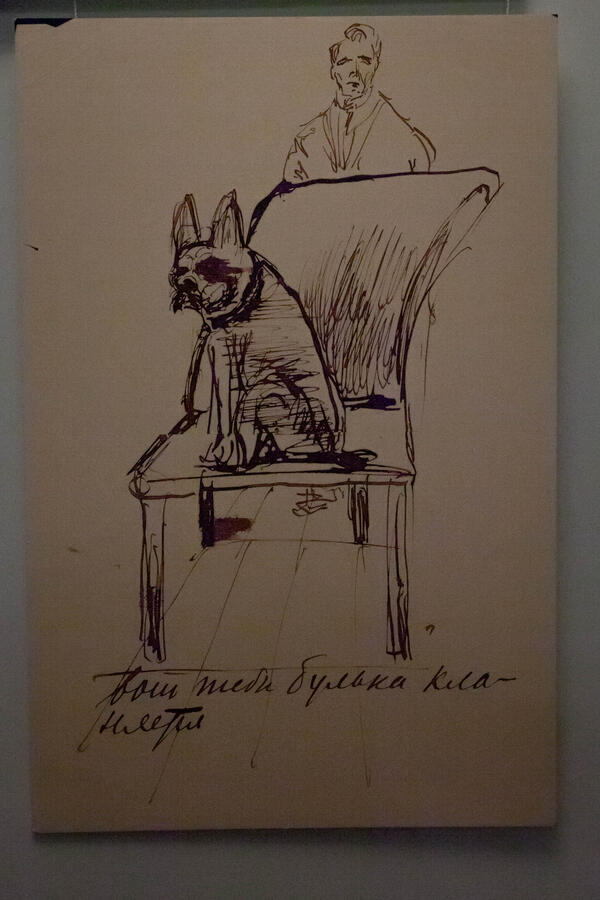 вот тебе булька кла-
няется